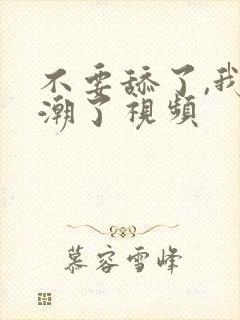 不要舔了,我
潮了視頻
慕容雪峰